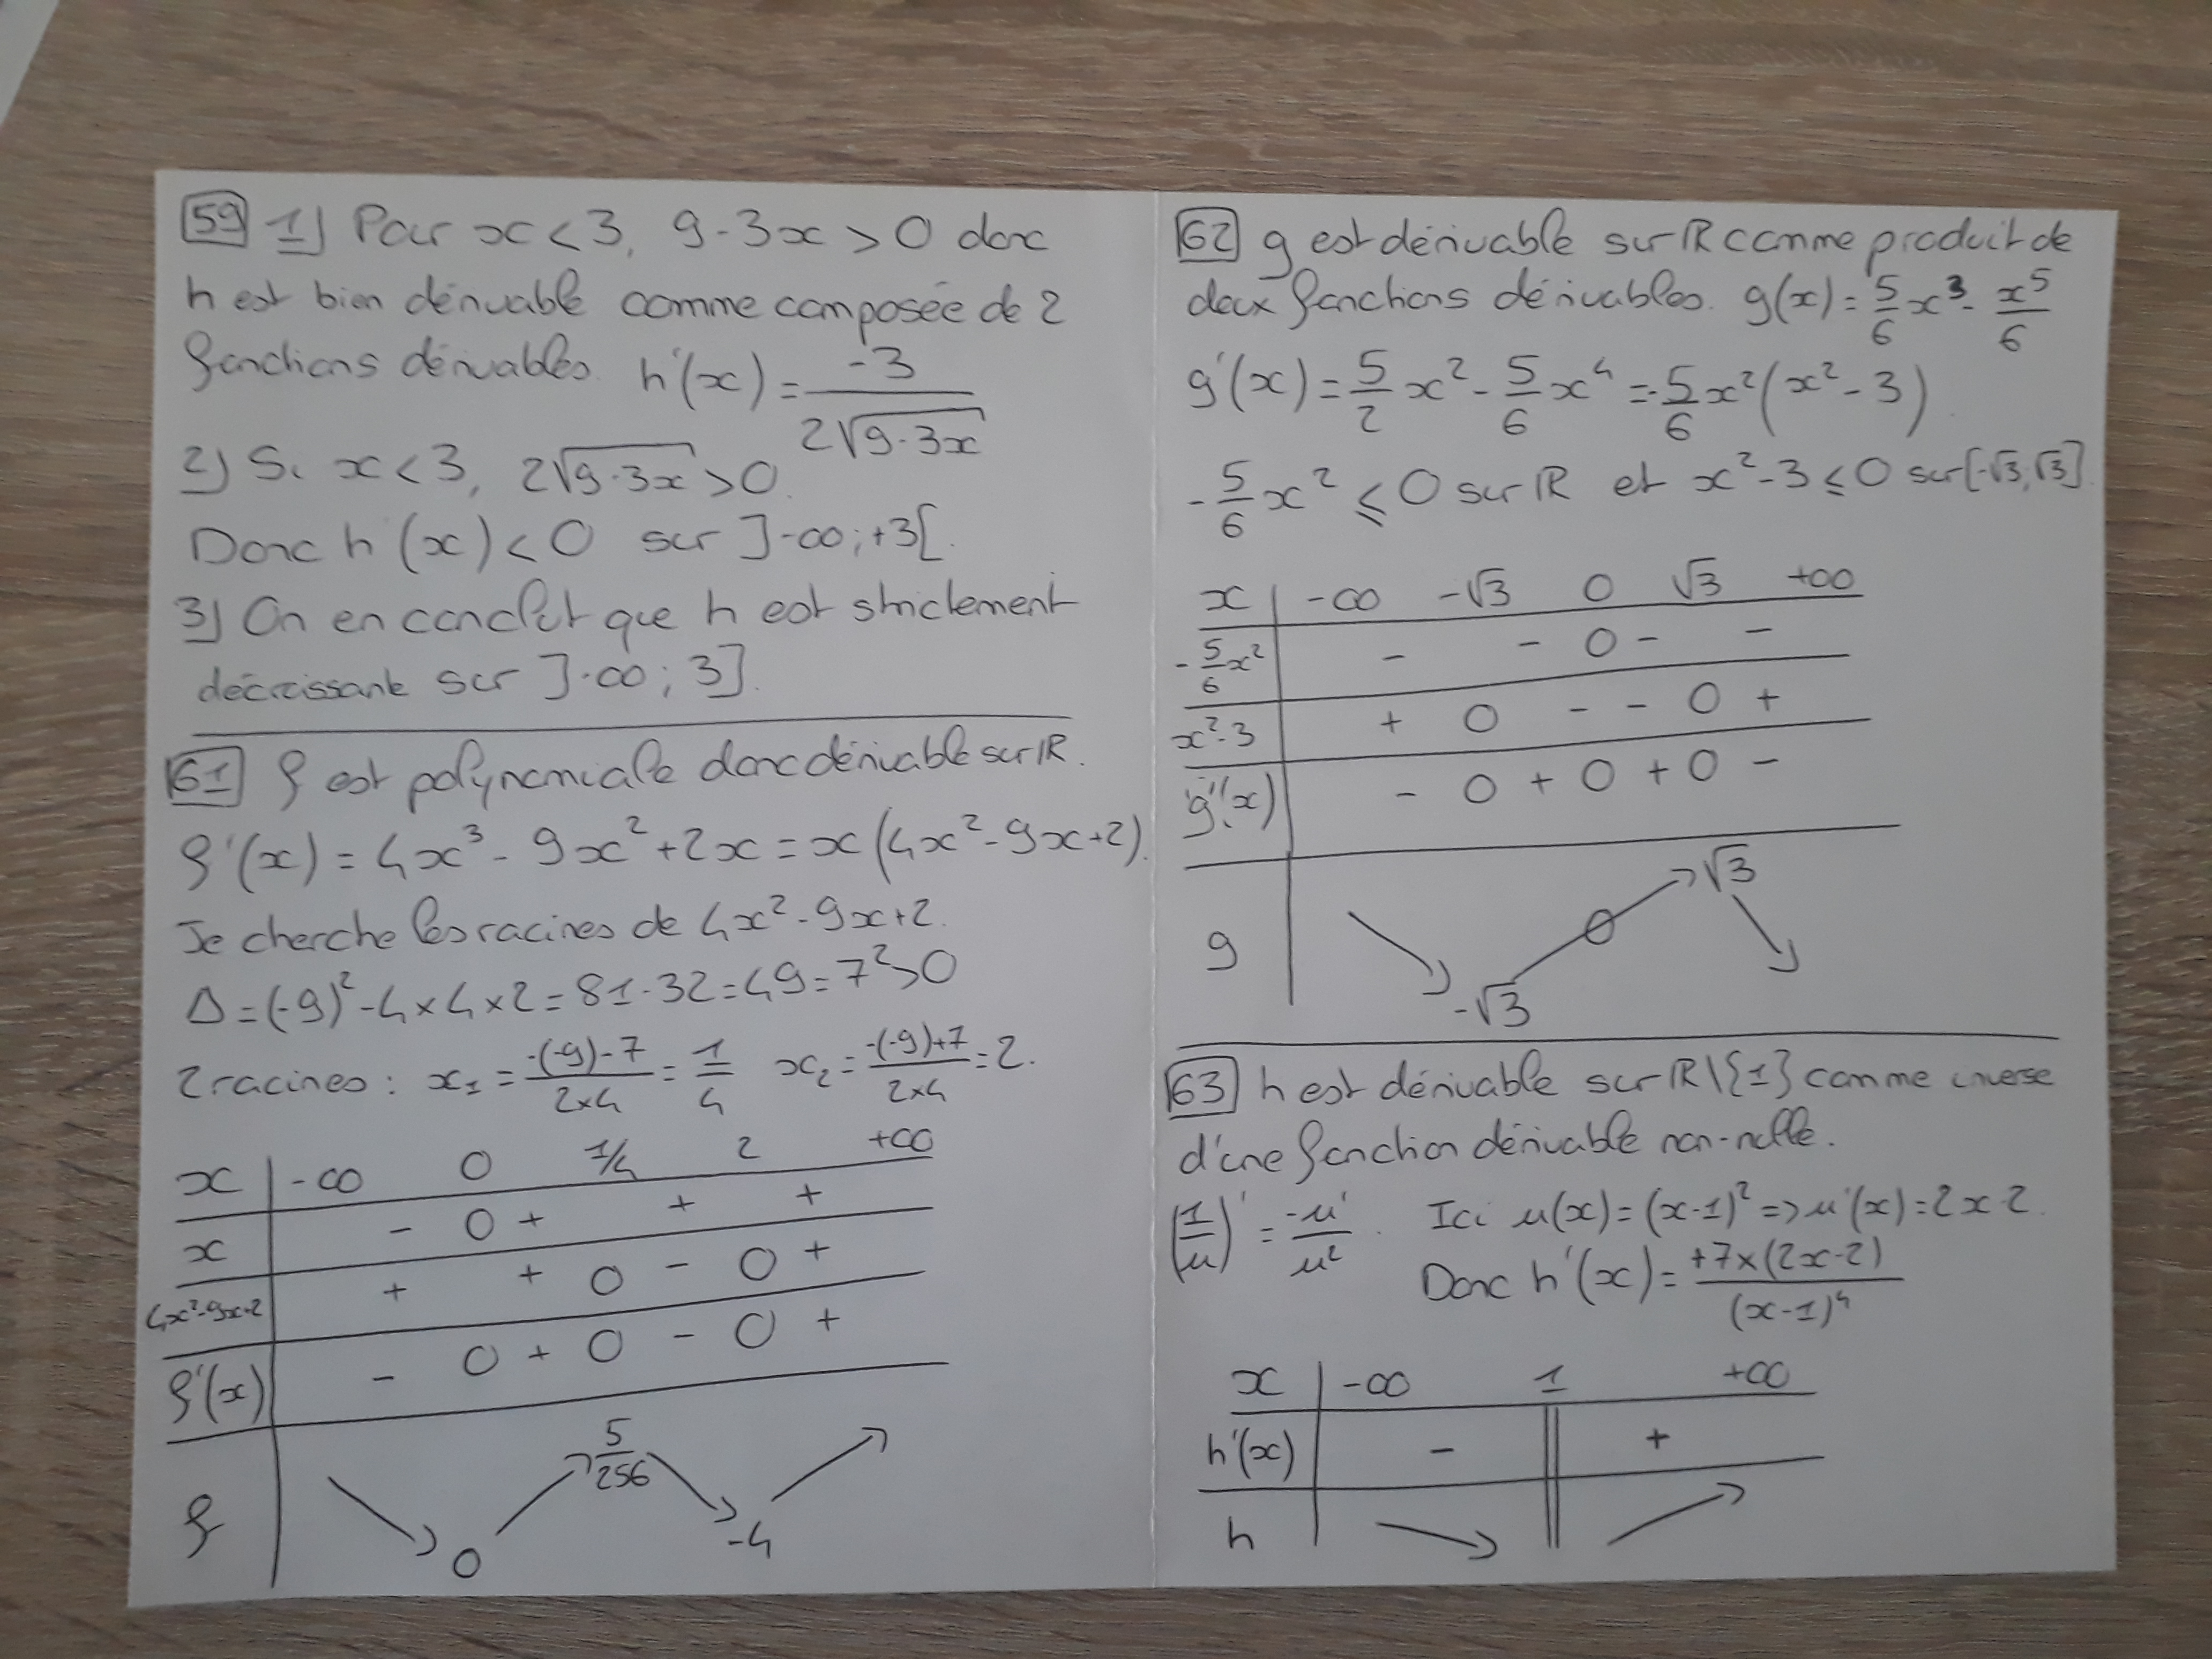 59 1) Pour x < 3, 9-3x > 0 donc
h est bien dérivable comme composée de 2
fonctions dérivables. h'(x) = -3 / (2√(9-3x))
2) Si x < 3, 2√(9-3x) > 0.
Donc h'(x) < 0 sur ]-∞;+3[.
3) On en conclut que h est strictement
décroissante sur ]-∞; 3].
61 f est polynomiale donc dérivable sur ℝ.
f'(x) = 4x³ - 9x² + 2x = x(4x² - 9x + 2).
Je cherche les racines de 4x² - 9x + 2.
Δ = (-9)² - 4×4×2 = 81-32 = 49 = 7² > 0
2 racines : x₁ = (-(-9)-7)/(2×4) = 1/4 x₂ = (-(-9)+7)/(2×4) = 2.
x | -∞ 0 1/4 2 +∞
x | - 0 + + +
4x²-9x+2 | + + 0 - 0 +
f'(x) | - 0 + 0 - 0 +
f | ↘ 0 ↗ 5/256 ↘ -4 ↗
62 g est dérivable sur ℝ comme produit de
deux fonctions dérivables. g(x) = 5/6 x³ - x⁵/6
g'(x) = 5/2 x² - 5/6 x⁴ = -5/6 x² (x² - 3).
-5/6 x² ≤ 0 sur ℝ et x² - 3 ≤ 0 sur [-√3;√3].
x | -∞ -√3 0 √3 +∞
-5/6 x² | - - 0 - -
x²-3 | + 0 - - 0 +
g'(x) | - 0 + 0 + 0 -
g | ↘ -√3 ↗ 0 ↗ √3 ↘
63 h est dérivable sur ℝ\{1} comme inverse
d'une fonction dérivable non-nulle.
(1/u)' = -u'/u². Ici u(x) = (x-1)² => u'(x) = 2x-2.
Donc h'(x) = +7×(2x-2) / (x-1)⁴
x | -∞ 1 +∞
h'(x) | - || +
h | ↘ || ↗